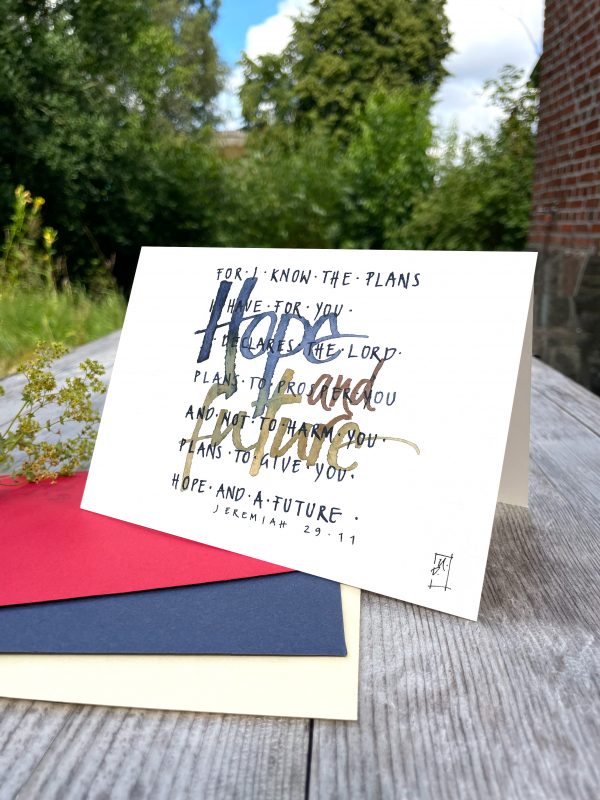 FOR · I · KNOW · THE · PLANS
I · HAVE · FOR · YOU ·
Hope
· DECLARES · THE · LORD ·
PLANS · TO · PROSPER · YOU
and
AND · NOT · TO · HARM · YOU ·
future
PLANS · TO · GIVE · YOU ·
HOPE · AND · A · FUTURE ·
JEREMIAH 29·11